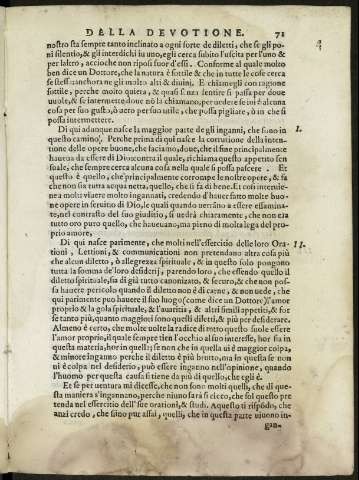 DELLA DEVOTIONE. 71
nostro sta sempre tanto inclinato a ogni sorte de diletti, che se gli po
ni silentio, & gli interdichi in uno, egli cerca subito l'uscita per l'uno &
per laltro, accioche non riposi fuor d'essi. Conforme al quale molto
ben dice un Dottore, che la natura è sottile & che in tutte le cose cerca
se stessa anchora ne gli molto alti & diuini. E chiamegli con ragione
sottile, perche molto quieta, & quasi senza sentire si passa per doue
vuole, & se intermette doue nō la chiamano, per uedere se iui è alcuna
cosa per suo gusto, ò uero per suo utile, che possa pigliare, ò in che si
possa intermettere.
Di qui adunque nasce la maggior parte de gli inganni, che sono in I.
questo camino. Perche prima di qui nasce la corrutione della inten-
tione delle opere buone, che faciamo, doue, che il fine principalmente
haueua da essere di Dio: contra il quale, richiama questo appetito sen
suale, che sempre cerca alcuna cosa nella quale si possa pascere. Et
questo è quello, che principalmente corrompe le nostre opere, & fa
che non sia tutta acqua netta, quello, che si fa di bene. Et cosi interuie-
ne a molta viuere molto ingannati, credendo d'hauer fatto molte buo-
ne opere in seruitio di Dio, le quali quando uerrāno a essere essamina-
te, nel contrasto del suo giuditio, si uedrà chiaramente, che non era
tutto oro puro quello, che haueuano, ma pieno di molta lega del pro-
prio amore.
Di qui nasce parimente, che molti nell'essercitio delle loro Ora II.
tioni, Lettioni, & communicationi non pretendano altra cosa più
che alcun diletto, ò allegrezza spirituale, & in questo solo pongano
tutta la somma de' loro desiderij, parendo loro, che essendo quello il
diletto spirituale, sia di già tutto canonizato, & securo, & che non pos-
sa hauere pericolo quando il diletto non è di carne, & non uede, che
qui parimente può hauere il suo luogo (come dice un Dottore) l'amor
proprio & la gola spirituale, & l'auaritia, & altri simili appetiti, & for
se tanto più, quanto maggiori sono questi diletti, & più per desiderare.
Almeno è certo, che molte uolte la radice di tutto questo suole essere
l'amor proprio, il quale sempre tien l'occhio al suo interesse, hor sia in
questa materia, hor in quelle; se non che in quella ui è maggior colpa,
& minore inganno perche il diletto è più brutto, ma in questa se non
ui è colpa nel desiderio, può essere inganno nell'opinione, quando
l'huomo per questa causa si tiene da più di quello, che egli è.
Et se per uentura mi dicesse, che non sono molti quelli, che di que-
sta maniera s'ingannano, perche niuno sarà si cieco, che sol questo pre
tenda nel essercitio dell' sue orationi, & studi. A questo ti rispōdo, che
anzi credo, che siano pur assai, quelli, che in questa parte uiuono in-
gan-